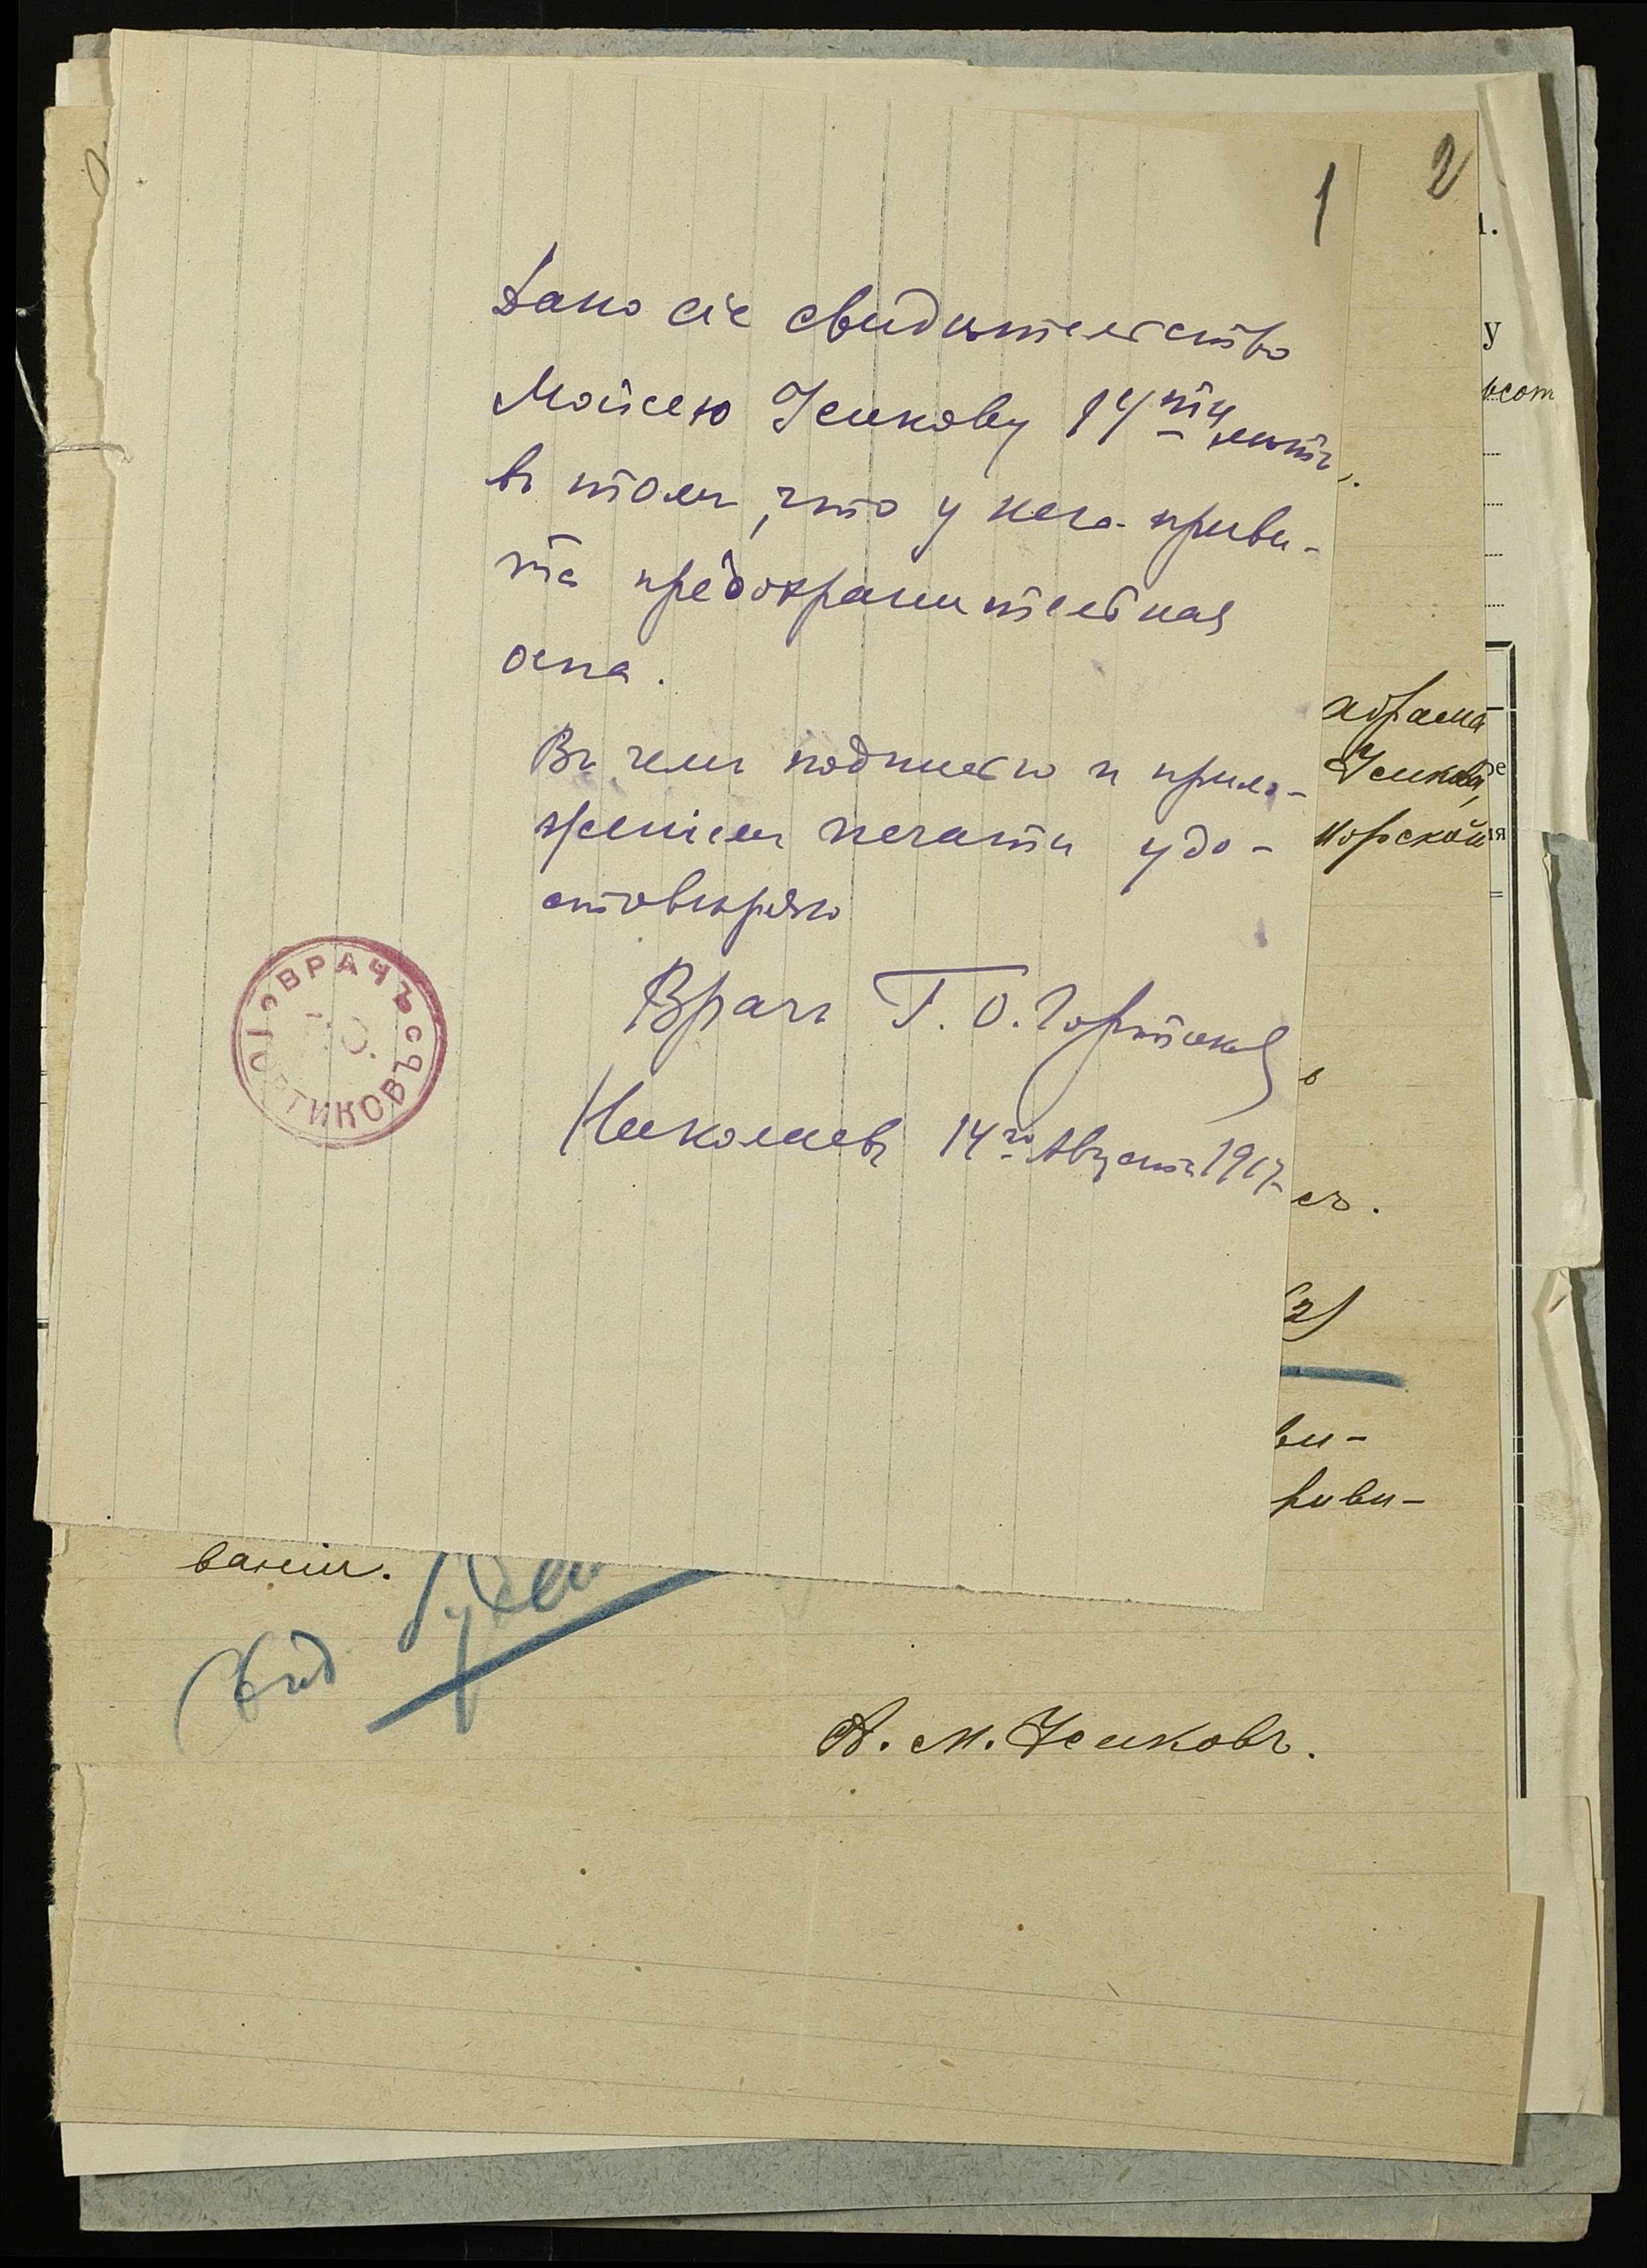 1
2
Дано сіе свидѣтельство
Мойсею Усикову 14ти лѣтъ
въ томъ, что у него приви-
та предохранительная
оспа.
Въ чемъ подписью и прило-
женіем печати удо-
стовѣряю
Врачъ Г. О.
Николаевъ 14го Августа 1917
ВРАЧЪ
Абрама
Усикова,
Морской
съ.
(2)
ви-
риви-
ваніи.
А. М. Усиковъ.